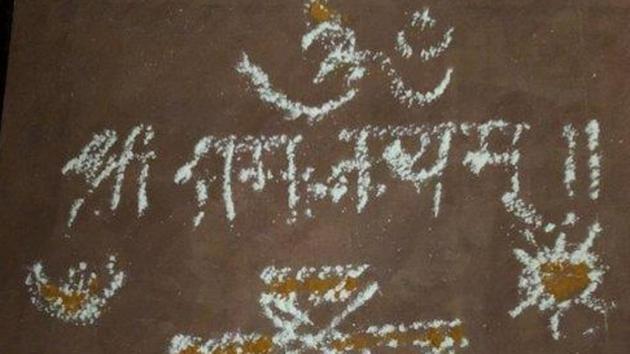 ॐ
श्री राम जयम् ॥